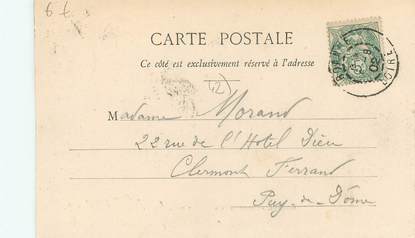 6 €
CARTE POSTALE
Ce côté est exclusivement réservé à l'adresse
(12)
Madame Morand
22 rue de l'Hotel Dieu
Clermont Ferrand
Puy-de-Dôme